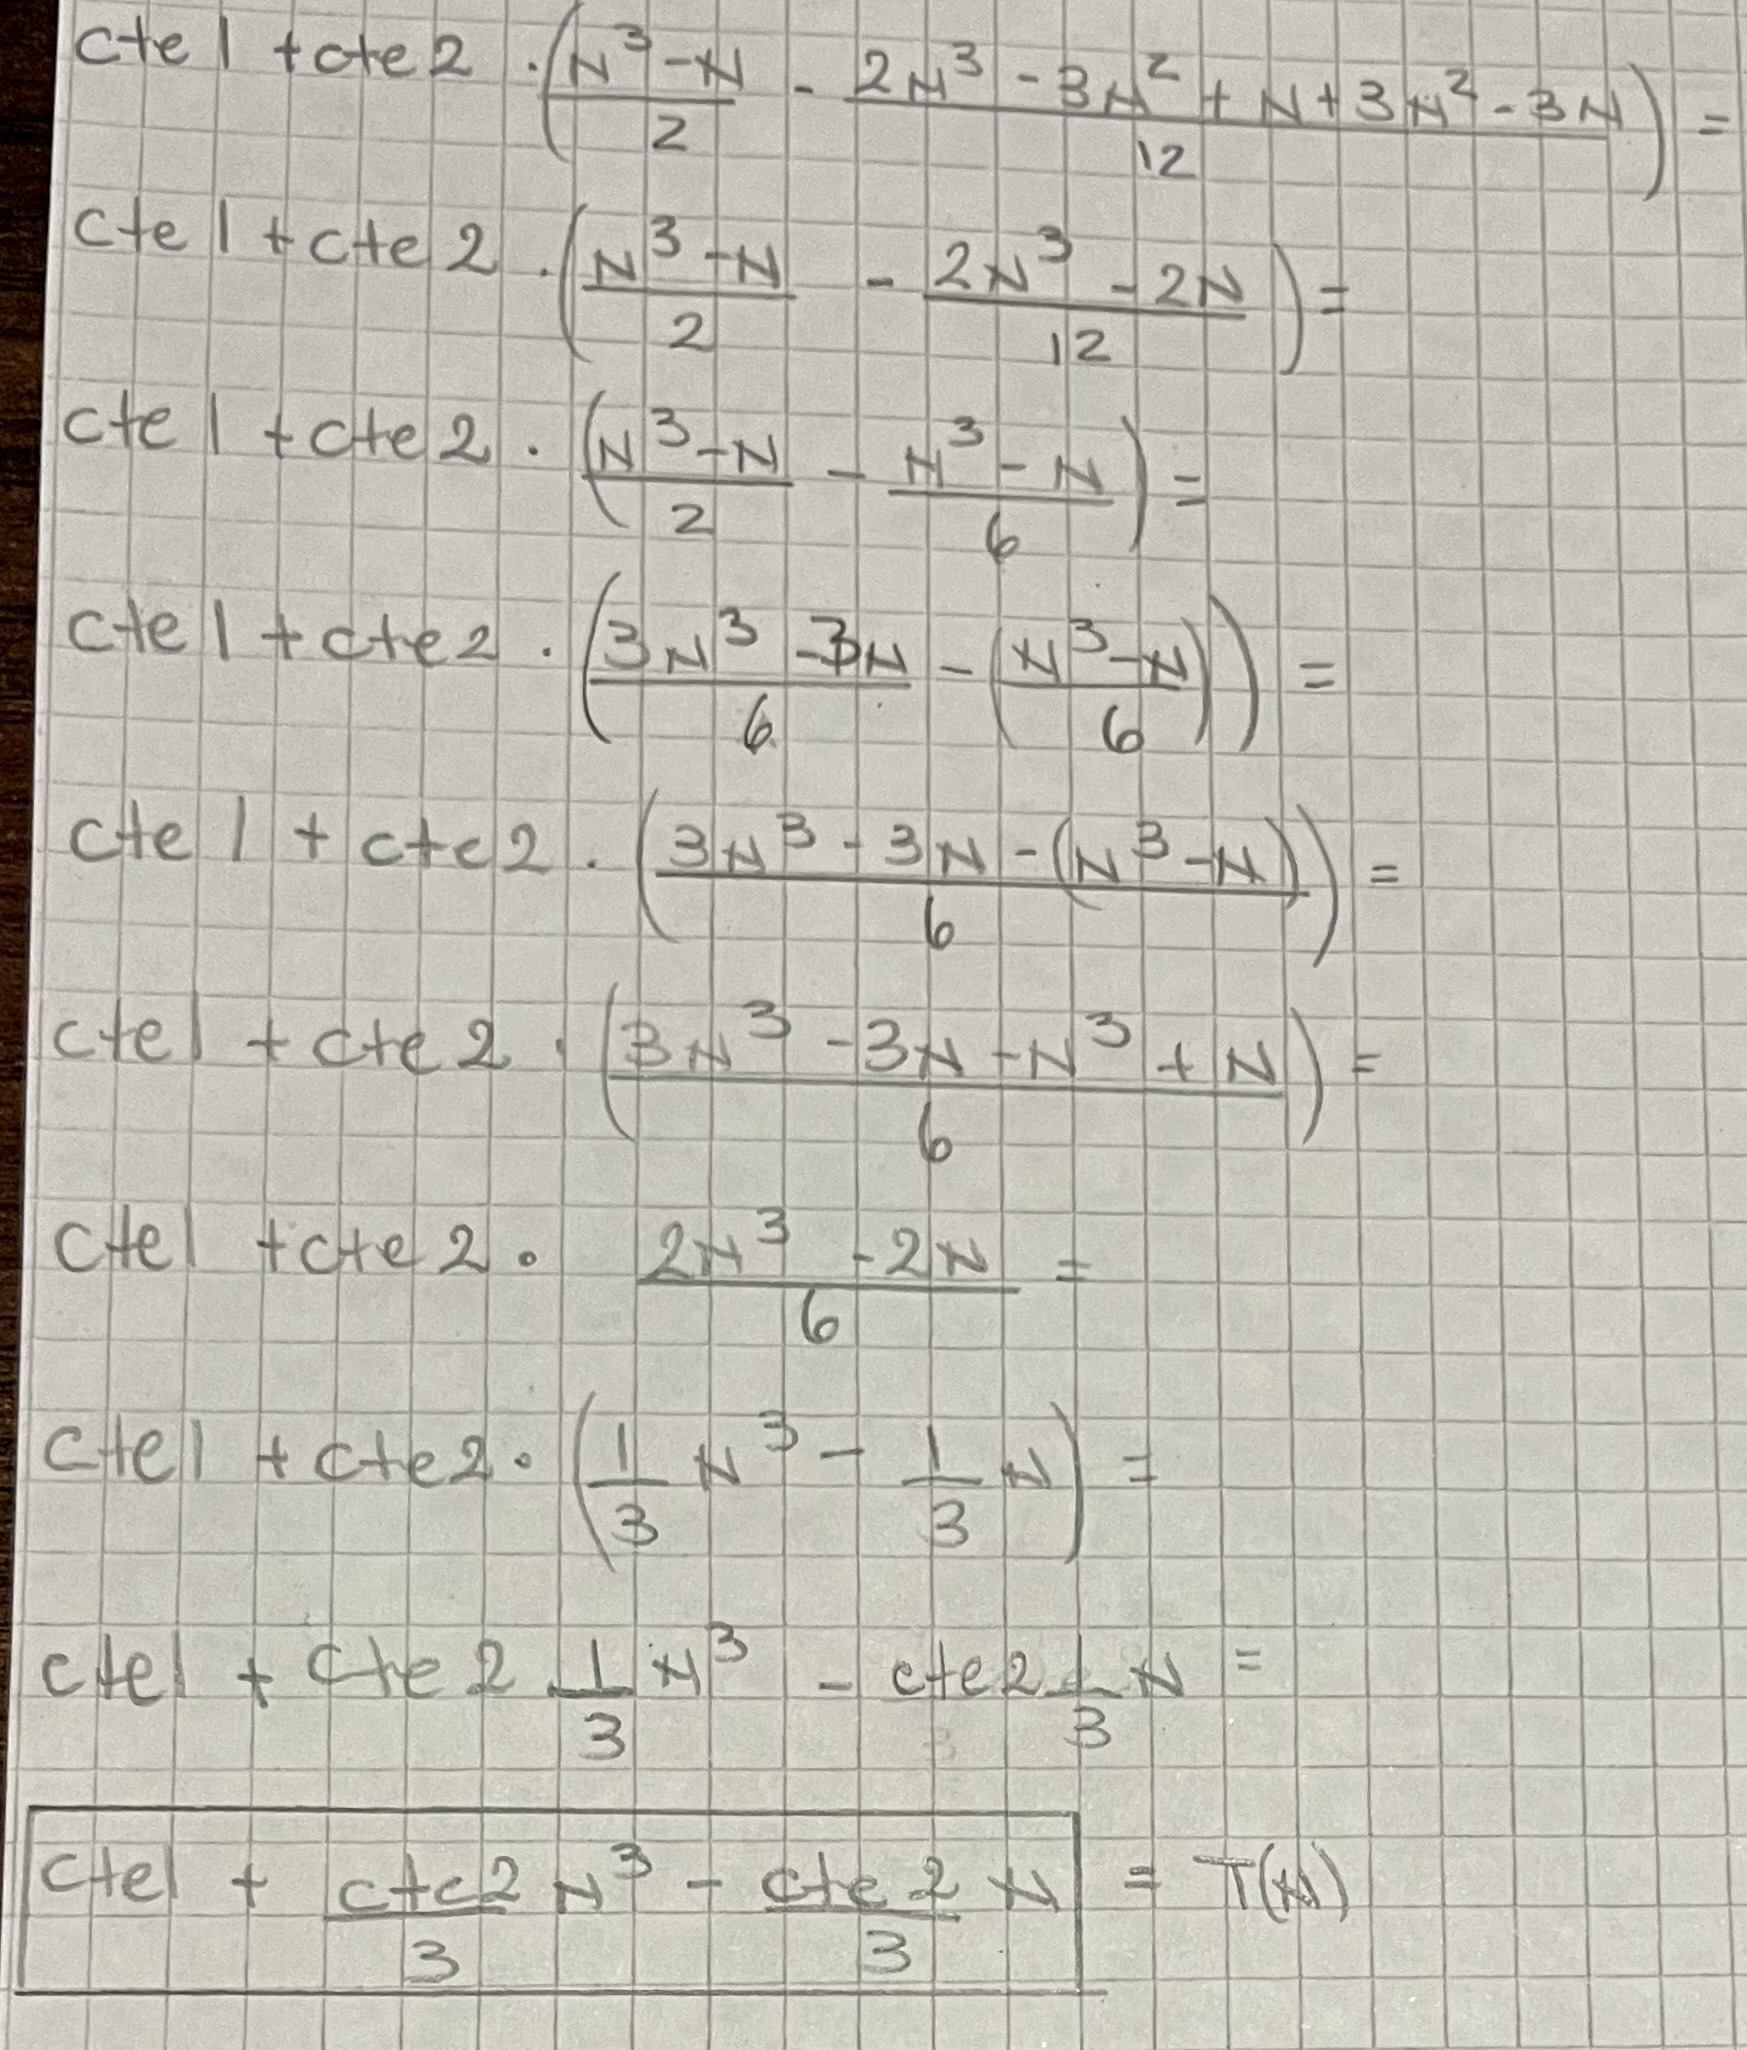 cte1 + cte2 · (N³-N/2 - 2N³-3N²+N+3N²-3N/12) =
cte1 + cte2 · (N³-N/2 - 2N³-2N/12) =
cte1 + cte2 · (N³-N/2 - N³-N/6) =
cte1 + cte2 · (3N³-3N/6 - (N³-N/6)) =
cte1 + cte2 · (3N³-3N-(N³-N)/6) =
cte1 + cte2 · (3N³-3N-N³+N/6) =
cte1 + cte2 · 2N³-2N/6 =
cte1 + cte2 · (1/3 N³ - 1/3 N) =
cte1 + cte2 1/3 N³ - cte2 1/3 N =
cte1 + cte2/3 N³ - cte2/3 N = T(N)